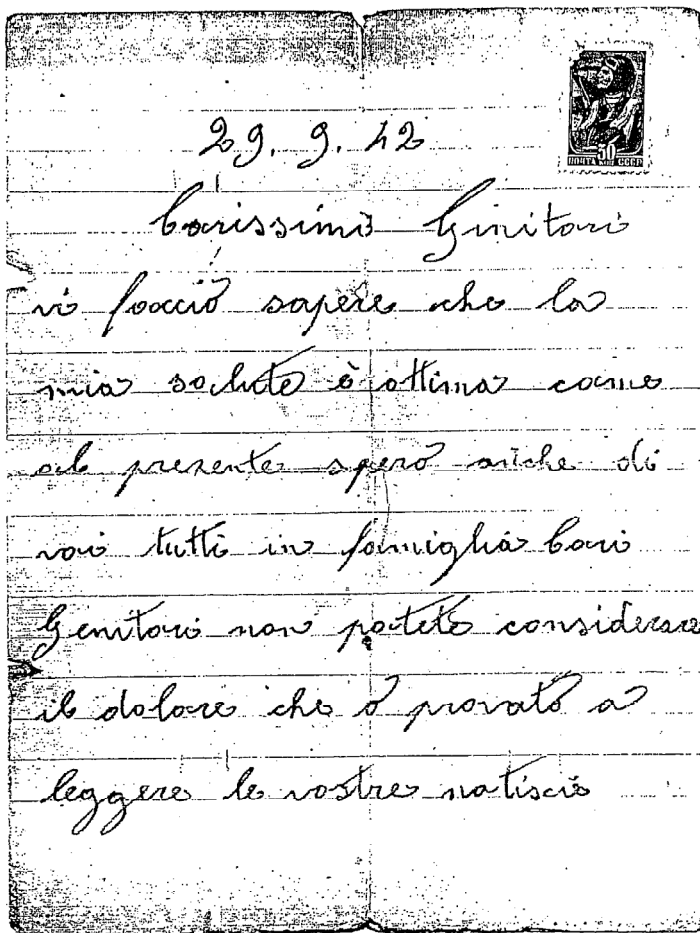 29. 9. 42
50
ПОЧТА КОП СССР
Carissimi Ginitori
vi faccio sapere che la
mia salute è ottima come
al presente spero anche di
voi tutti in famiglia Cari
Genitori non potete considerare
il dolore che o provato a
leggere le vostre notiscie